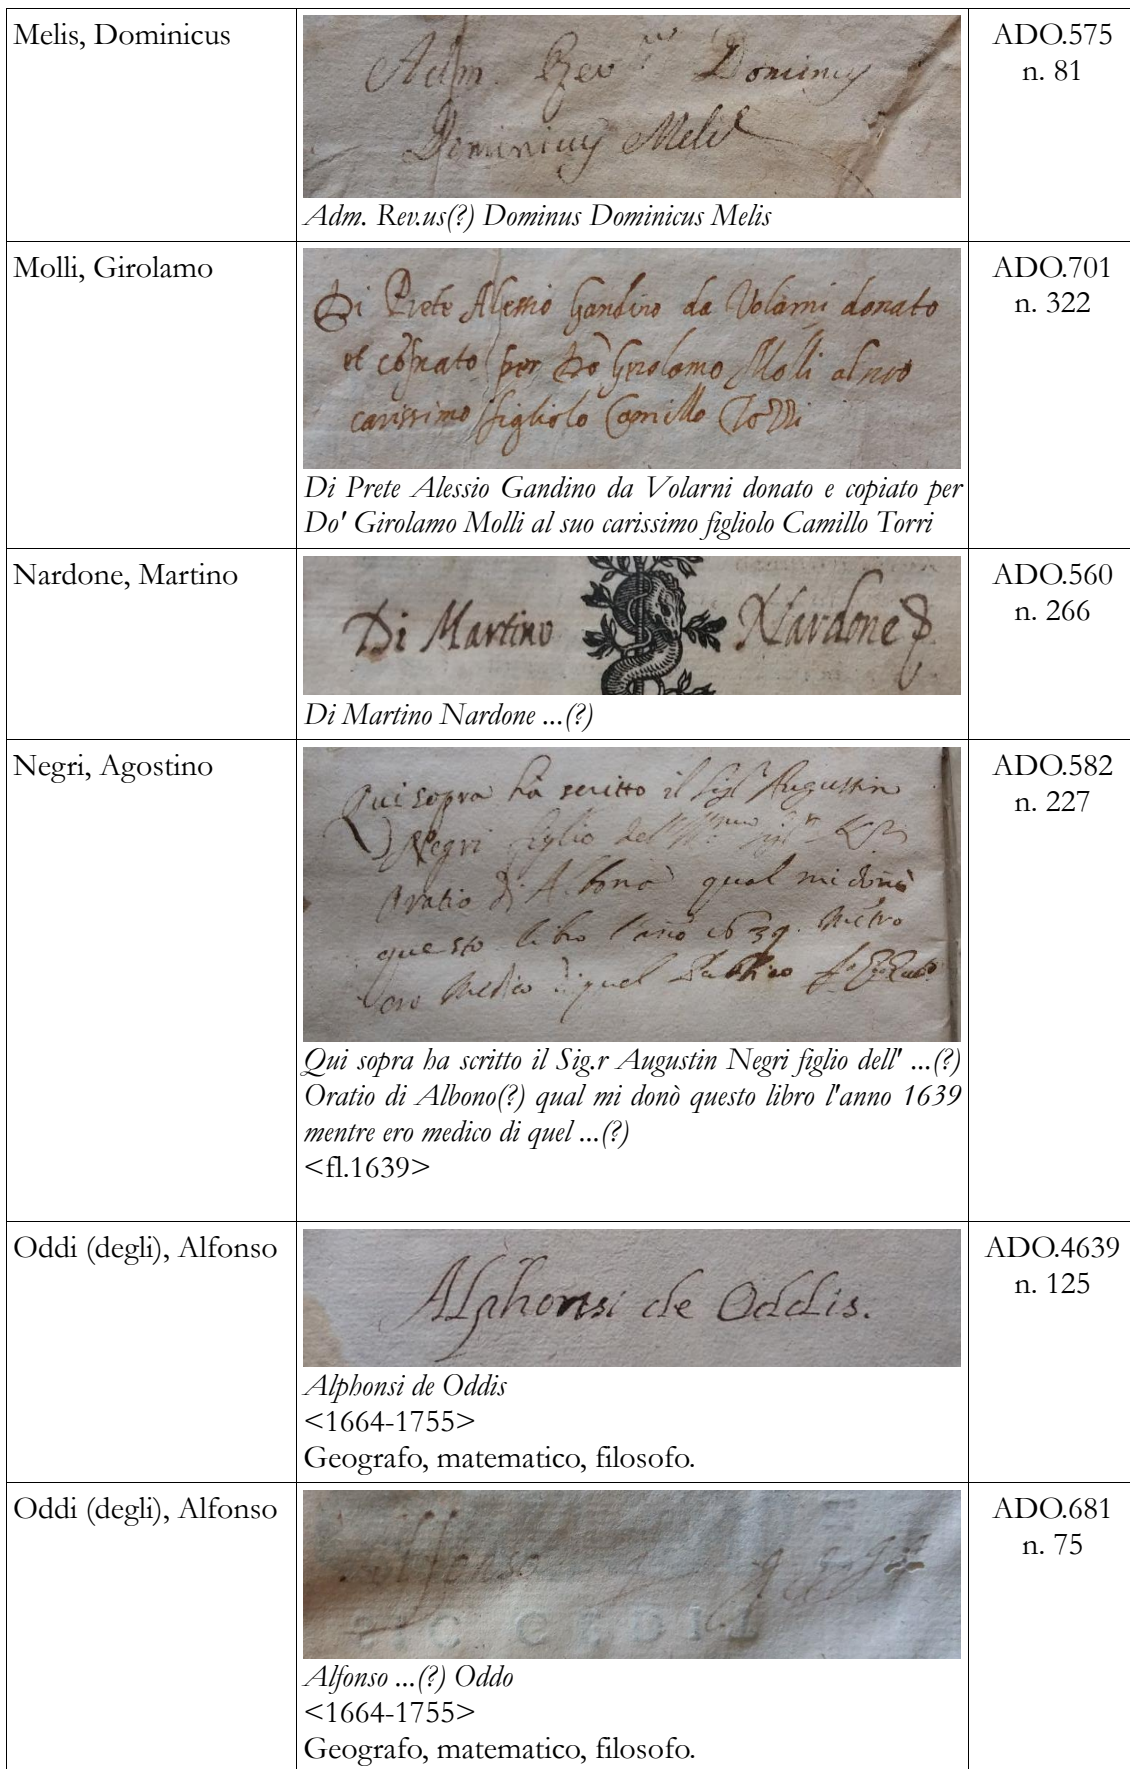 Melis, Dominicus
Adm. Rev Dominus
Dominicus Melis
Adm. Rev.us(?) Dominus Dominicus Melis
ADO.575
n. 81
Molli, Girolamo
Di Prete Alessio Gandino da Volarni donato
et copiato per Do Girolamo Molli al suo
carissimo figliolo Camillo Torri
Di Prete Alessio Gandino da Volarni donato e copiato per
Do' Girolamo Molli al suo carissimo figliolo Camillo Torri
ADO.701
n. 322
Nardone, Martino
Di Martino Nardone
Di Martino Nardone ...(?)
ADO.560
n. 266
Negri, Agostino
Qui sopra ha scritto il Sig.r Augustin
Negri figlio dell
Oratio di qual mi donò
questo libro l'anno 1639 mentre
ero Medico di quel
Qui sopra ha scritto il Sig.r Augustin Negri figlio dell' ...(?)
Oratio di Albono(?) qual mi donò questo libro l'anno 1639
mentre ero medico di quel ...(?)
<fl.1639>
ADO.582
n. 227
Oddi (degli), Alfonso
Alphonsi de Oddis.
Alphonsi de Oddis
<1664-1755>
Geografo, matematico, filosofo.
ADO.4639
n. 125
Oddi (degli), Alfonso
Alfonso
Alfonso ...(?) Oddo
<1664-1755>
Geografo, matematico, filosofo.
ADO.681
n. 75